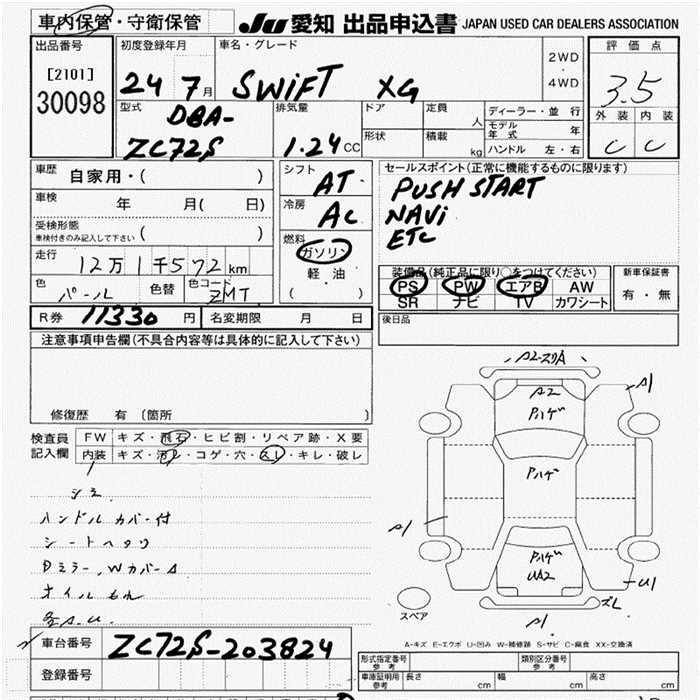 車内保管・守衛保管 JU 愛知 出品申込書 JAPAN USED CAR DEALERS ASSOCIATION
出品番号
[2101]
30098
初度登録年月
24 7月
車名・グレード
SWIFT XG
2WD
・
4WD
評価点
3.5
外装 内装
C C
型式
DBA-
ZC72S
排気量
1.24 CC
ドア
定員
人
形状
積載
kg
ディーラー・並行
モデル年式 年
ハンドル 左・右
車歴
自家用・( )
車検
年 月( 日)
受検形態
車検付きのみ記入して下さい ( )
走行
12万1千572km
色
パール
色替
色コード
ZMT
シフト
AT
冷房
AC
燃料
ガソリン
軽油
( )
セールスポイント(正常に機能するものに限ります)
PUSH START
NAVi
ETC
装備品(純正品に限り○をつけてください)
PS PW エアB AW
SR ナビ TV カワシート
新車保証書
有・無
R券 11330 円
名変期限 月 日
後日品
注意事項申告欄(不具合内容等は具体的に記入して下さい)
修復歴 有 (箇所 )
検査員
記入欄
FW キズ・飛石・ヒビ割・リペア跡・X要
内装 キズ・汚レ・コゲ・穴・スレ・キレ・破レ
シミ
ハンドルカバー付
シートヘタリ
Dミラー、Wカバー
オイルもれ
各A.U.
A2
A1
A2
Pハゲ
Pハゲ
A1
Pハゲ
UA2
U1
ズレ
A1
スペア
A-キズ E-エクボ U-凹み W-補修跡 S-サビ C-腐食 XX-交換済
車台番号
ZC72S-203824
登録番号
形式指定番号
参考
類別区分番号
参考
車庫証明用
参考
長さ cm
幅 cm
高さ cm